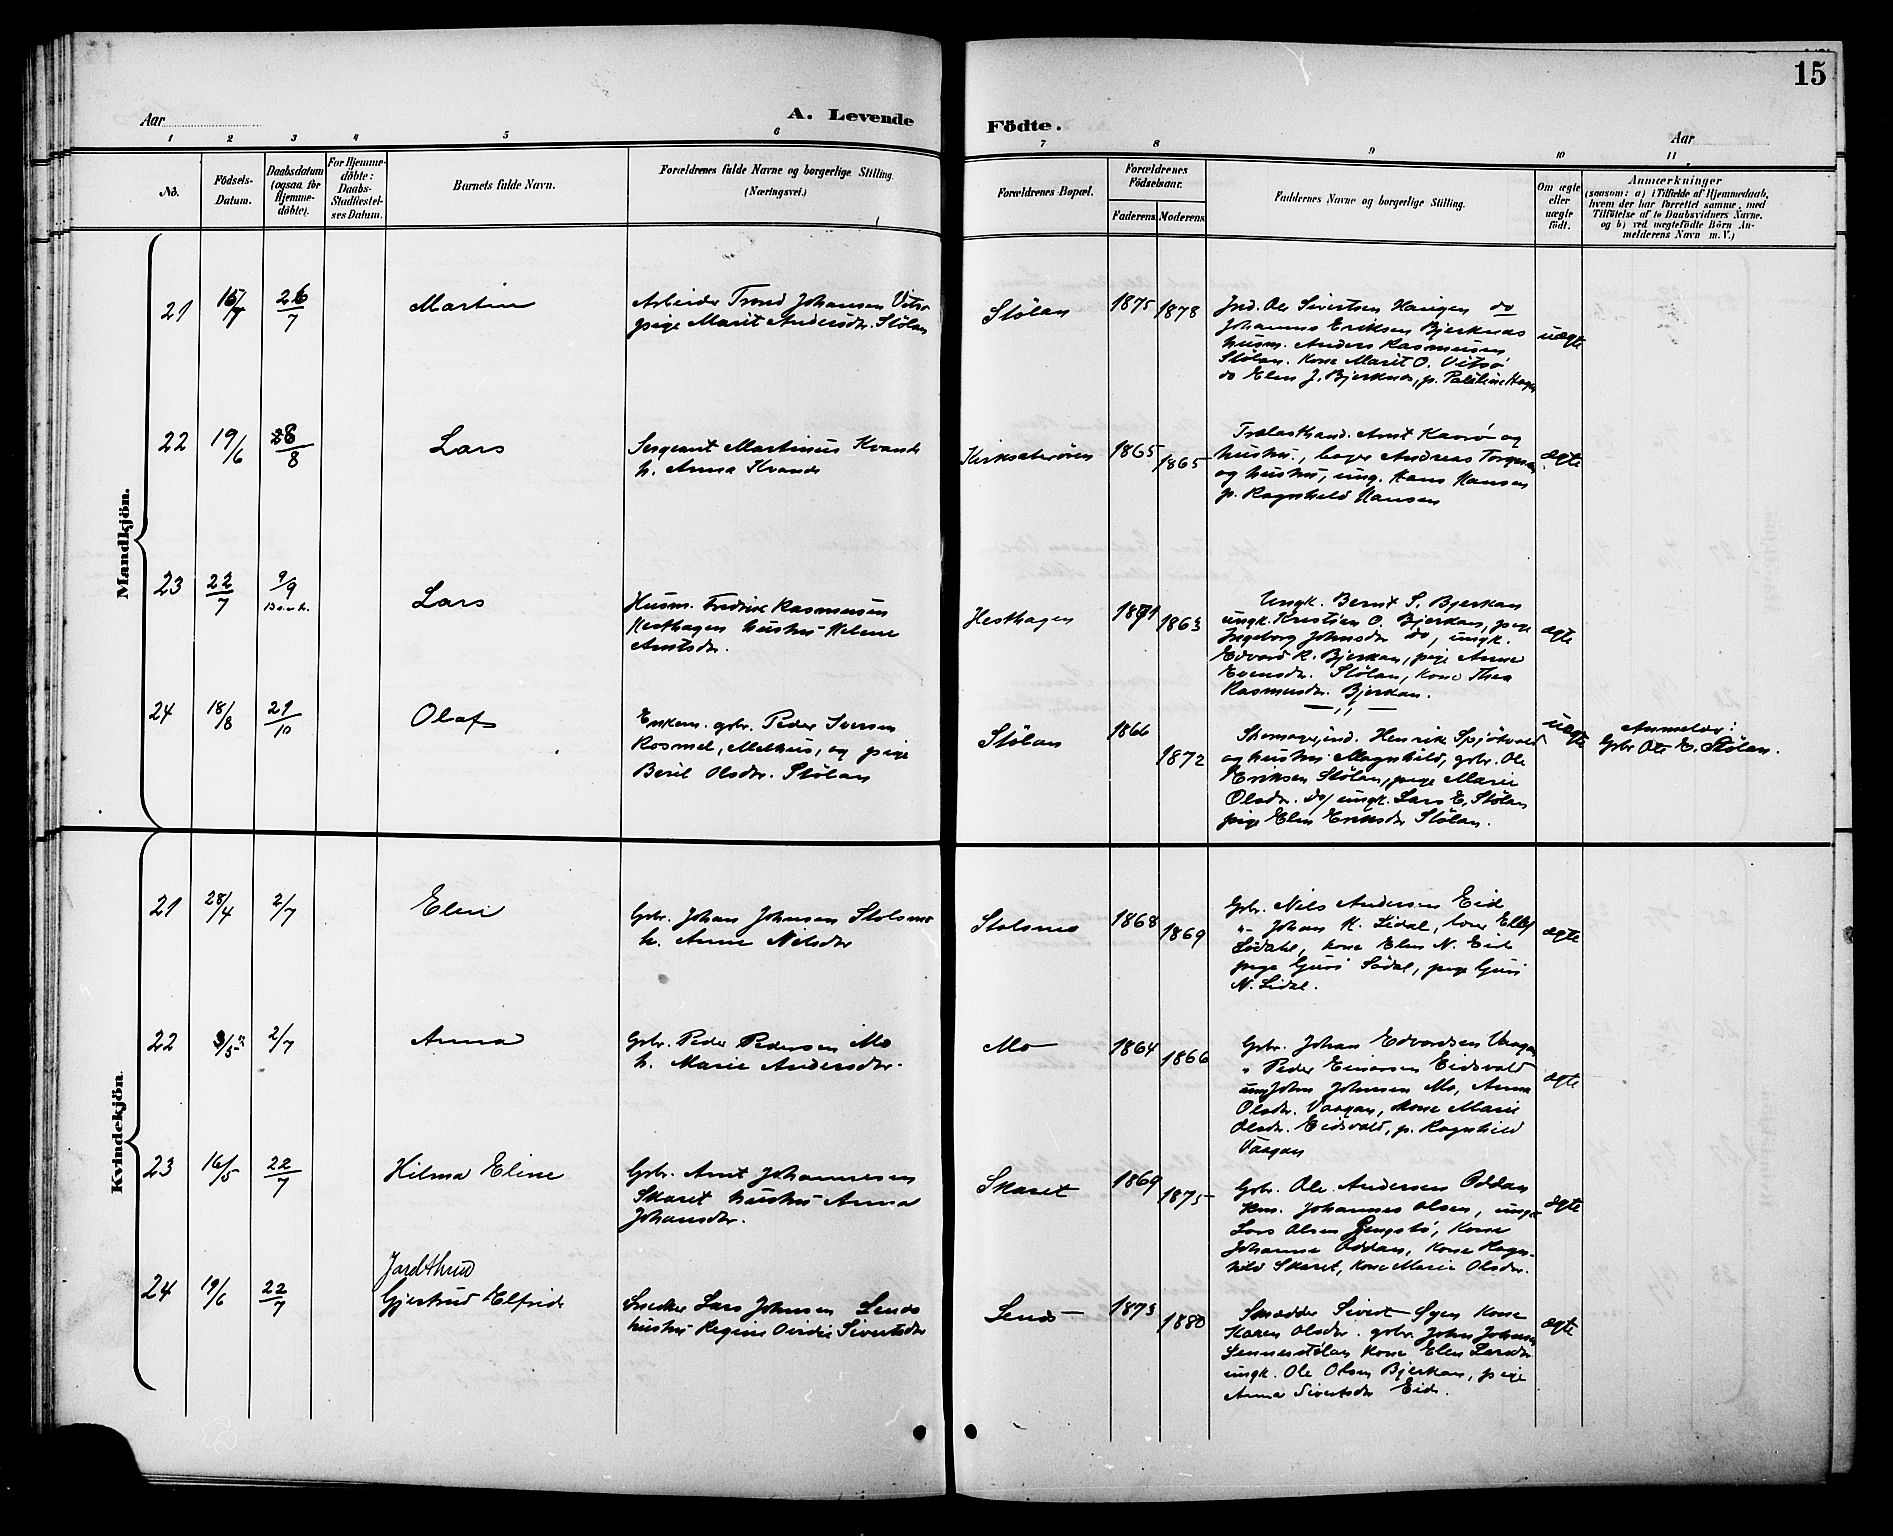 15
Aar
A. Levende
Födte.
Aar
1 2 3 4 5 6 7 8 9 10 11
No.
Födsels-
Datum.
Daabsdatum
(ogsaa for
Hjemme-
döbte).
For Hjemme-
döbte:
Daabs-
Stadfæstel-
ses Datum.
Barnets fulde Navn.
Forældrenes fulde Navne og borgerlige Stilling.
(Næringsvei.)
Forældrenes Bopæl.
Forældrenes
Födselsaar.
Faderens
Moderens
Faddernes Navne og borgerlige Stilling.
Om ægte
eller
uægte
födt.
Anmærkninger
(saasom: a) i Tilfælde af Hjemmedaab,
hvem der har forrettet samme, med
Tilföielse af to Daabsvidners Navne.
og b) ved uægtefödte Börn An-
melderens Navn m. V.)
Mandkjön.
21 15/7 26/7 Martin
Arbeider Trond Johansen Vitsø
pige Marit Andersdr. Stølan
Stølan 1875 1878
Ind. Ole Sivertsen Haugen do
Johannes Eriksen Bjerknes
husm. Anders Rasmussen
Stølan. Kone Marit O. Vitsø
do Elen J. Bjerknes, p.
uægte
22 19/6 28/8 Lars
Sergeant Martinus Kvande
h. Anna Kvande
Kirksæterøren 1865 1865
Trælasthand. Arnt Kaarø og
hustru, Andreas
og hustru, ung. Hans Hansen
p. Ragnhild Hansen
ægte
23 22/7 9/9 Lars
Husm. Fredrik Rasmussen
Hesthagen hustru Helene
Arntsdr.
Hesthagen 1871 1863
Ungk. Bernt S. Bjerkan
ungk. Kristien O. Bjerkan, pige
Ingeborg Johnsdr do, ungk.
Edvard R. Bjerkan, pige Anne
Evensdr. Stølan, kone Thea
Rasmusdr. Bjerkan.
ægte
24 18/8 29/10 Olaf
Enkem. gbr. Peder Iversen
Rosmel, Melhus, og pige
Beril Olsdr. Stølan
Stølan 1866 1872
Skomager, ind. Henrik Spjøtvold
og hustru Magnhild, gbr. Ole
Eriksen Stølan, pige Marie
Olsdr. do, ungk. Lars E. Stølan
pige Elen Eriksdr Stølan.
uægte
Anmelder:
Gbr. Ole E. Stølan.
Kvindekjön.
21 28/4 2/7 Elen
Gbr. Johan Johnsen Stolsmo
h. Anne Nilsdr
Stolsmo 1868 1869
Gbr. Nils Andersen Eid
"- Johan H. Lidal,
kone Elen N. Eid
pige Guri Södal, pige Guri
N. Lidal.
ægte
22 2/7 Anna
Gbr. Peder Pedersen Mo
h. Marie Andersdr.
Mo 1864 1866
Gbr. Johan Edvardsen Vaagan
" Peder Einarsen Eidsvold
ung John Johnsen Mo, Anna
Olsdr. Vaagan, kone Marie
Olsdr. Eidsvold, p. Ragnhild
Vaagan
ægte
23 16/5 22/7 Hilma Eline
Gbr. Arnt Johannesen
Skaret hustru Anna
Johansdr.
Skaret 1869 1875
Gbr. Ole Andersen Oddan
Hm. Johannes Olsen, ungk
Lars Olsen Gengstö, Kone
Johanna Oddan, Kone Ragn-
hild Skaret, Kone Marie Olsdr.
ægte
Jardthrud
24 19/6 22/7 Gjertrud Elfride
Snedker Lars Johnsen Lende
hustru Regine Ovidie Sivertsdr
Lende 1873 1880
Skrædder Sivert Øyen Kone
Karen Olsdr. gbr. John Johnsen
Sennerstölan Kone Elen Larsdr
ungk. Ole Olsen Bjerkan, pige
Anna Sivertsdr Eid.
ægte